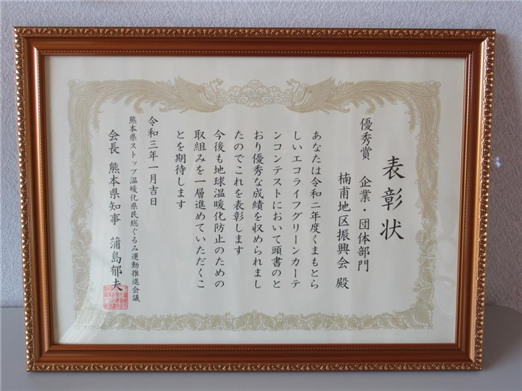 表彰状
優秀賞 企業・団体部門
楠甫地区振興会 殿
あなたは令和二年度くまもとら
しいエコライフグリーンカーテ
ンコンテストにおいて頭書のと
おり優秀な成績を収められまし
たのでこれを表彰します
今後も地球温暖化防止のための
取組みを一層進めていただくこ
とを期待します
令和三年一月吉日
熊本県ストップ温暖化県民総ぐるみ運動推進会議
会長 熊本県知事 蒲島郁夫